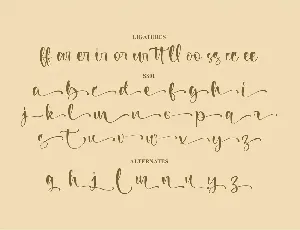 LIGATURES
ff ar er ir or ur tt ll oo ss cc ee
SS01
a b c d e f g h i
j k l m n o p q r
s t u v w x y z
ALTERNATES
g h j l m n u y z